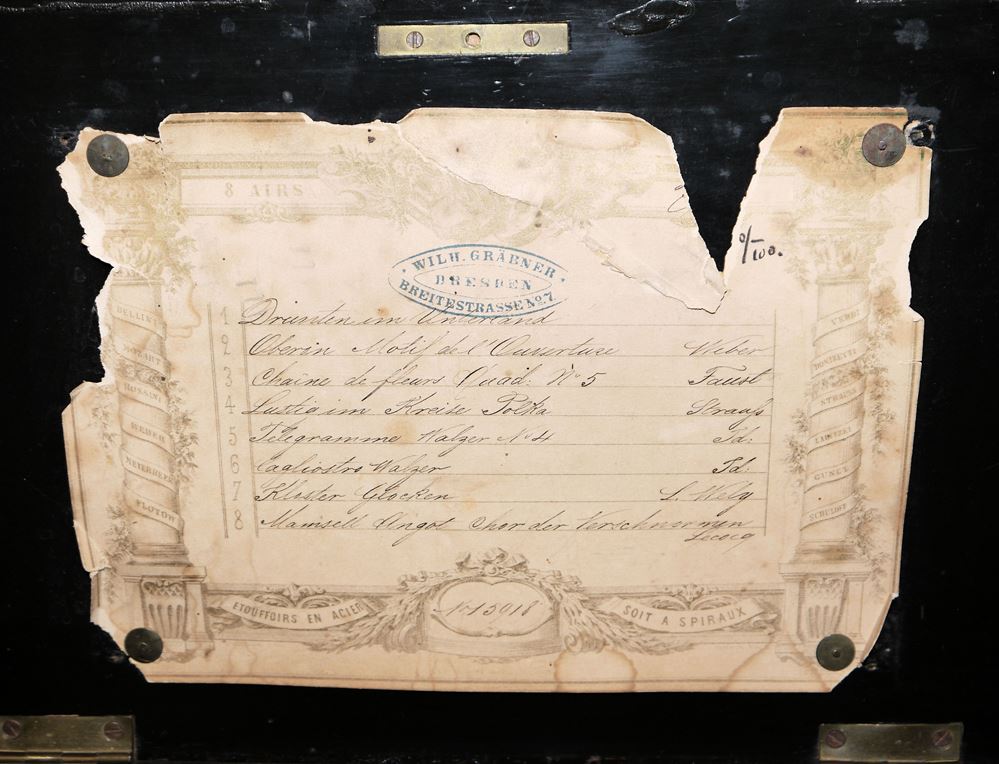 8 AIRS
0/100.
WILH. GRÄBNER
DRESDEN
BREITESTRASSE No. 7.
1 Drunten im Unterland
2 Oberin Motif de l'Ouverture Weber
3 Chaine de fleurs Quad: No 5 Faust
4 Lustig im Kreise Polka Strauß
5 Telegramme Walzer No 4 Id:
6 Cagliostro Walzer Id:
7 Kloster Glocken L. Wely
8 Mamsell Angot Chor der Verschwornnen
Lecocq
BELLINI
MOZART
ROSSINI
WEBER
MEYERBEER
FLOTOW
VERDI
DONIZETTI
STRAUSS
GUNGL
SCHULHOF
ETOUFFOIRS EN ACIER
No 13918
SOIT A SPIRAUX